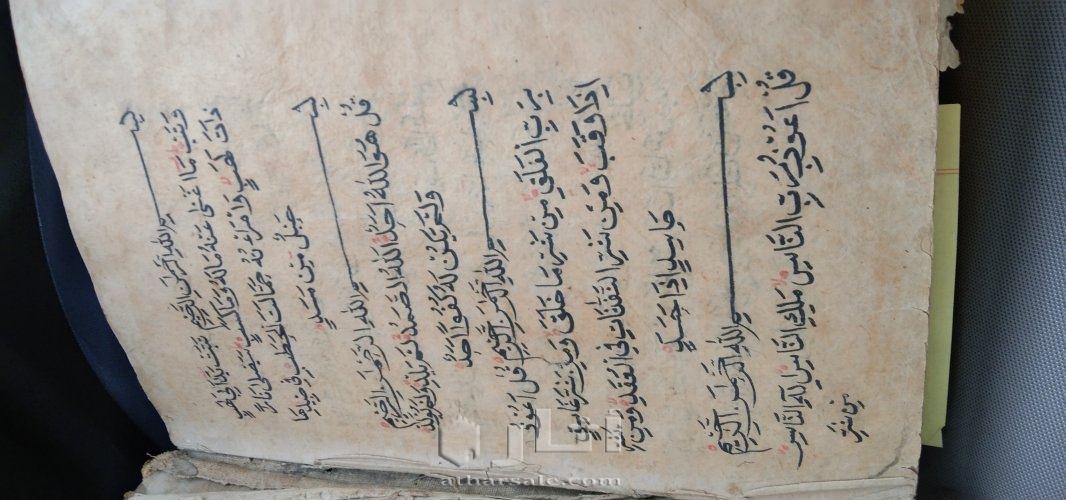 بِسْمِ اللهِ الرَّحْمٰنِ الرَّحِيمِ تَبَّتْ يَدَا اَبِي لَهَبٍ
وَتَبَّ مَا اَغْنٰى عَنْهُ مَالُهُ وَمَا كَسَبَ سَيَصْلٰى نَارًا
ذَاتَ لَهَبٍ وَامْرَاَتُهُ حَمَّالَتَ الْحَطَبِ فِي جِيدِهَا
حَبْلٌ مِنْ مَسَدٍ
بِسْمِ اللهِ الرَّحْمٰنِ الرَّحِيمِ
قُلْ هُوَ اللهُ اَحَدٌ اَللهُ الصَّمَدُ لَمْ يَلِدْ وَلَمْ يُولَدْ
وَلَمْ يَكُنْ لَهُ كُفُوًا اَحَدٌ
بِسْمِ اللهِ الرَّحْمٰنِ الرَّحِيمِ قُلْ اَعُوذُ
بِرَبِّ الْفَلَقِ مِنْ شَرِّ مَا خَلَقَ وَمِنْ شَرِّ غَاسِقٍ
اِذَا وَقَبَ وَمِنْ شَرِّ النَّفَّثَاتِ فِي الْعُقَدِ وَمِنْ شَرِّ
حَاسِدٍ اِذَا حَسَدَ
بِسْمِ اللهِ الرَّحْمٰنِ الرَّحِيمِ
قُلْ اَعُوذُ بِرَبِّ النَّاسِ مَلِكِ النَّاسِ اِلٰهِ النَّاسِ
مِنْ شَرِّ
atharsale.com